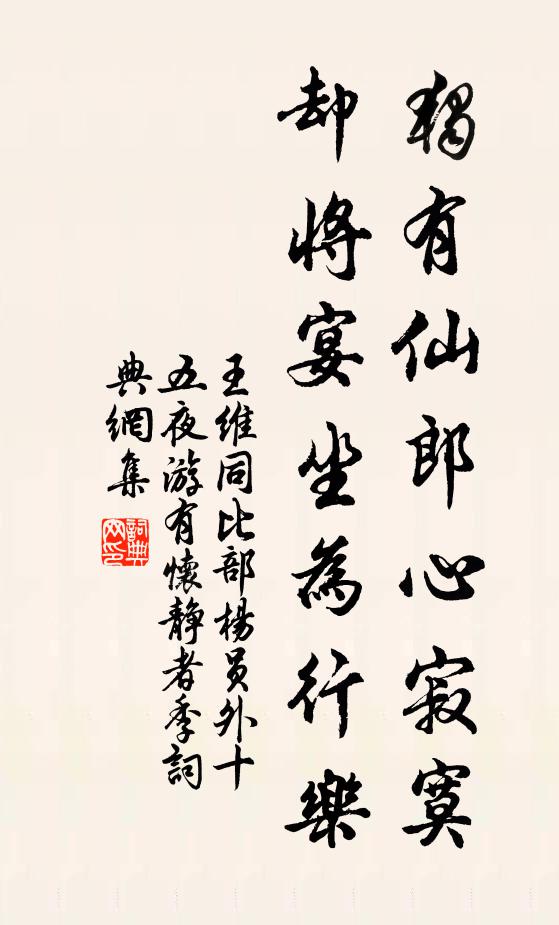 獨有仙郎心寂寞
却將宴坐為行樂
王維同比部楊員外十
五夜游有懷靜者季詞
典網集
詞典網印